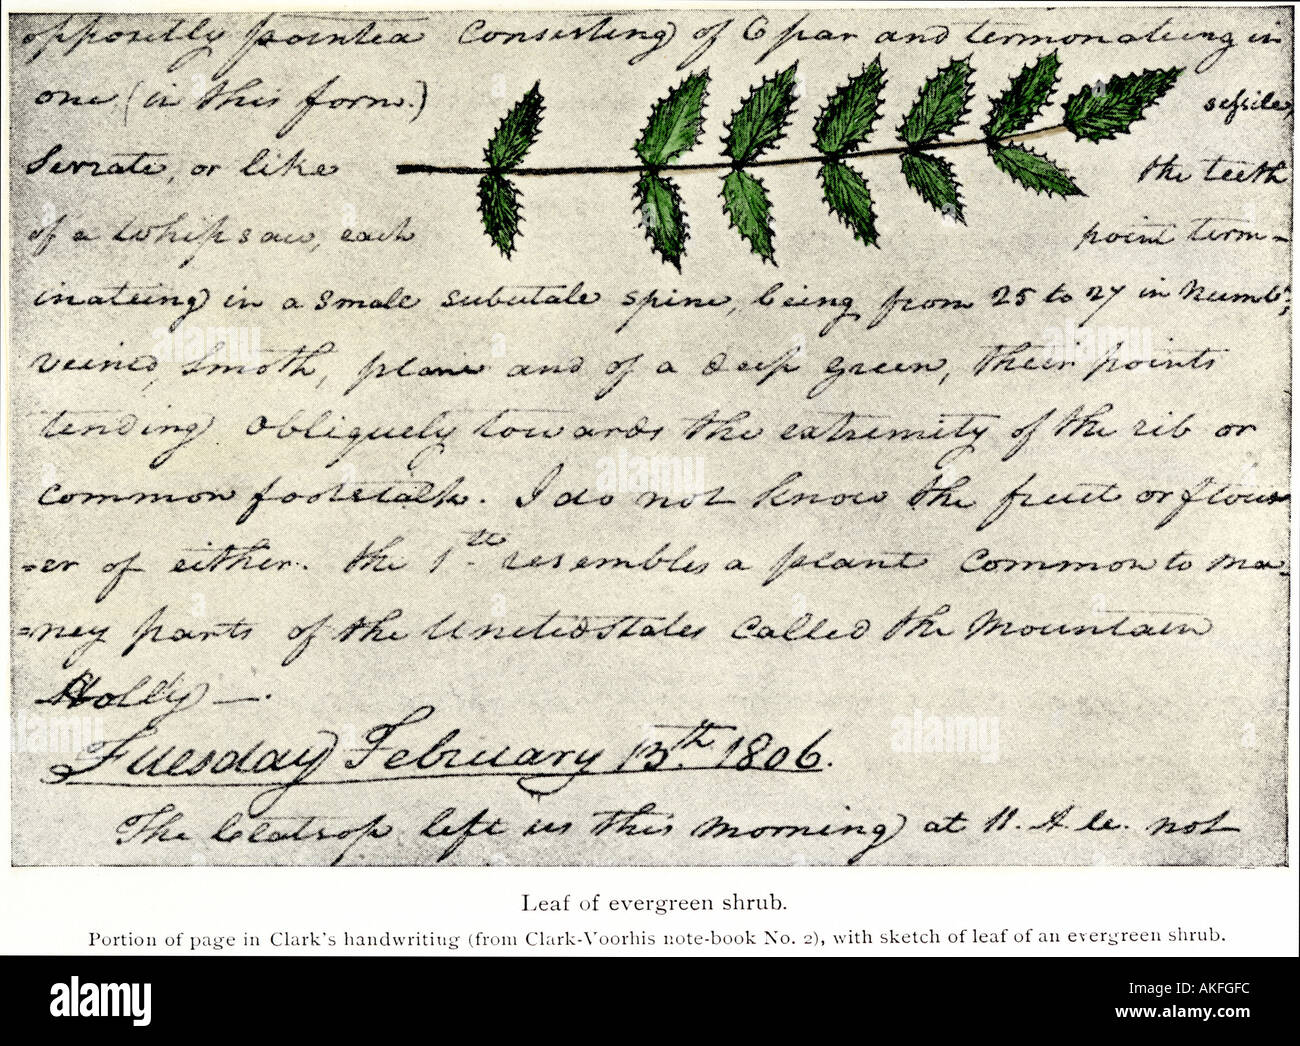 oppositly pointed Consisting of 6 par and termonateing in
one, (in this form.) sessile,
Serrate, or like the teeth
of a whipsaw, each point term=
inateing in a small subulate spine, being from 25 to 27 in Numbr,
veined, Smoth, plane and of a deep green, their points
tending obliquely towards the extremity of the rib or
common footstalk. I do not know the fruit or flow
=er of either. the 1st resembles a plant Common to ma=
=ney parts of the United States called the Mountain
Holly —.
Tuesday February 13th 1806.
The Clatsop left us this morning at 11. A.M. not
Leaf of evergreen shrub.
Portion of page in Clark's handwriting (from Clark-Voorhis note-book No. 2), with sketch of leaf of an evergreen shrub.
alamy
alamy
alamy
alamy
alamy
a
a
a
a
alamy
Image ID: AKFGFC
www.alamy.com